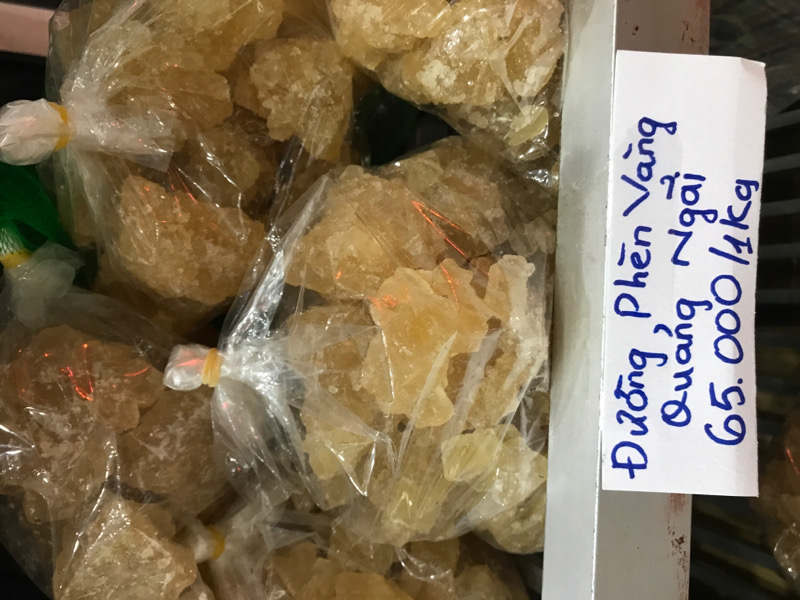 Đường Phèn Vàng
Quảng Ngãi
65.000/1Kg